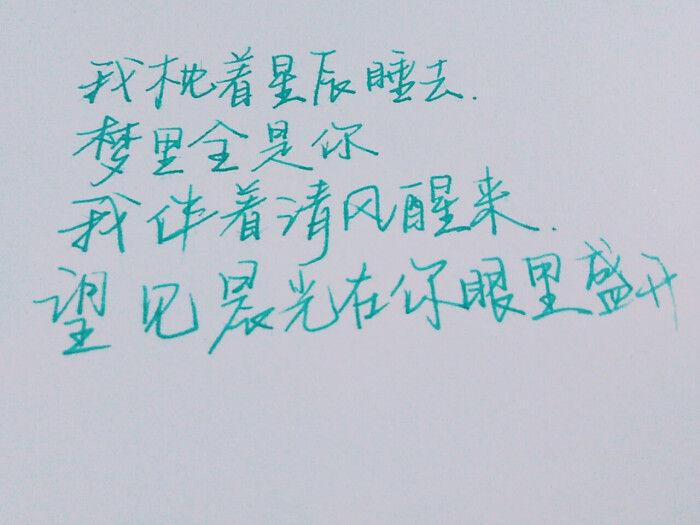 我枕着星辰睡去.
梦里全是你
我伴着清风醒来.
望见晨光在你眼里盛开